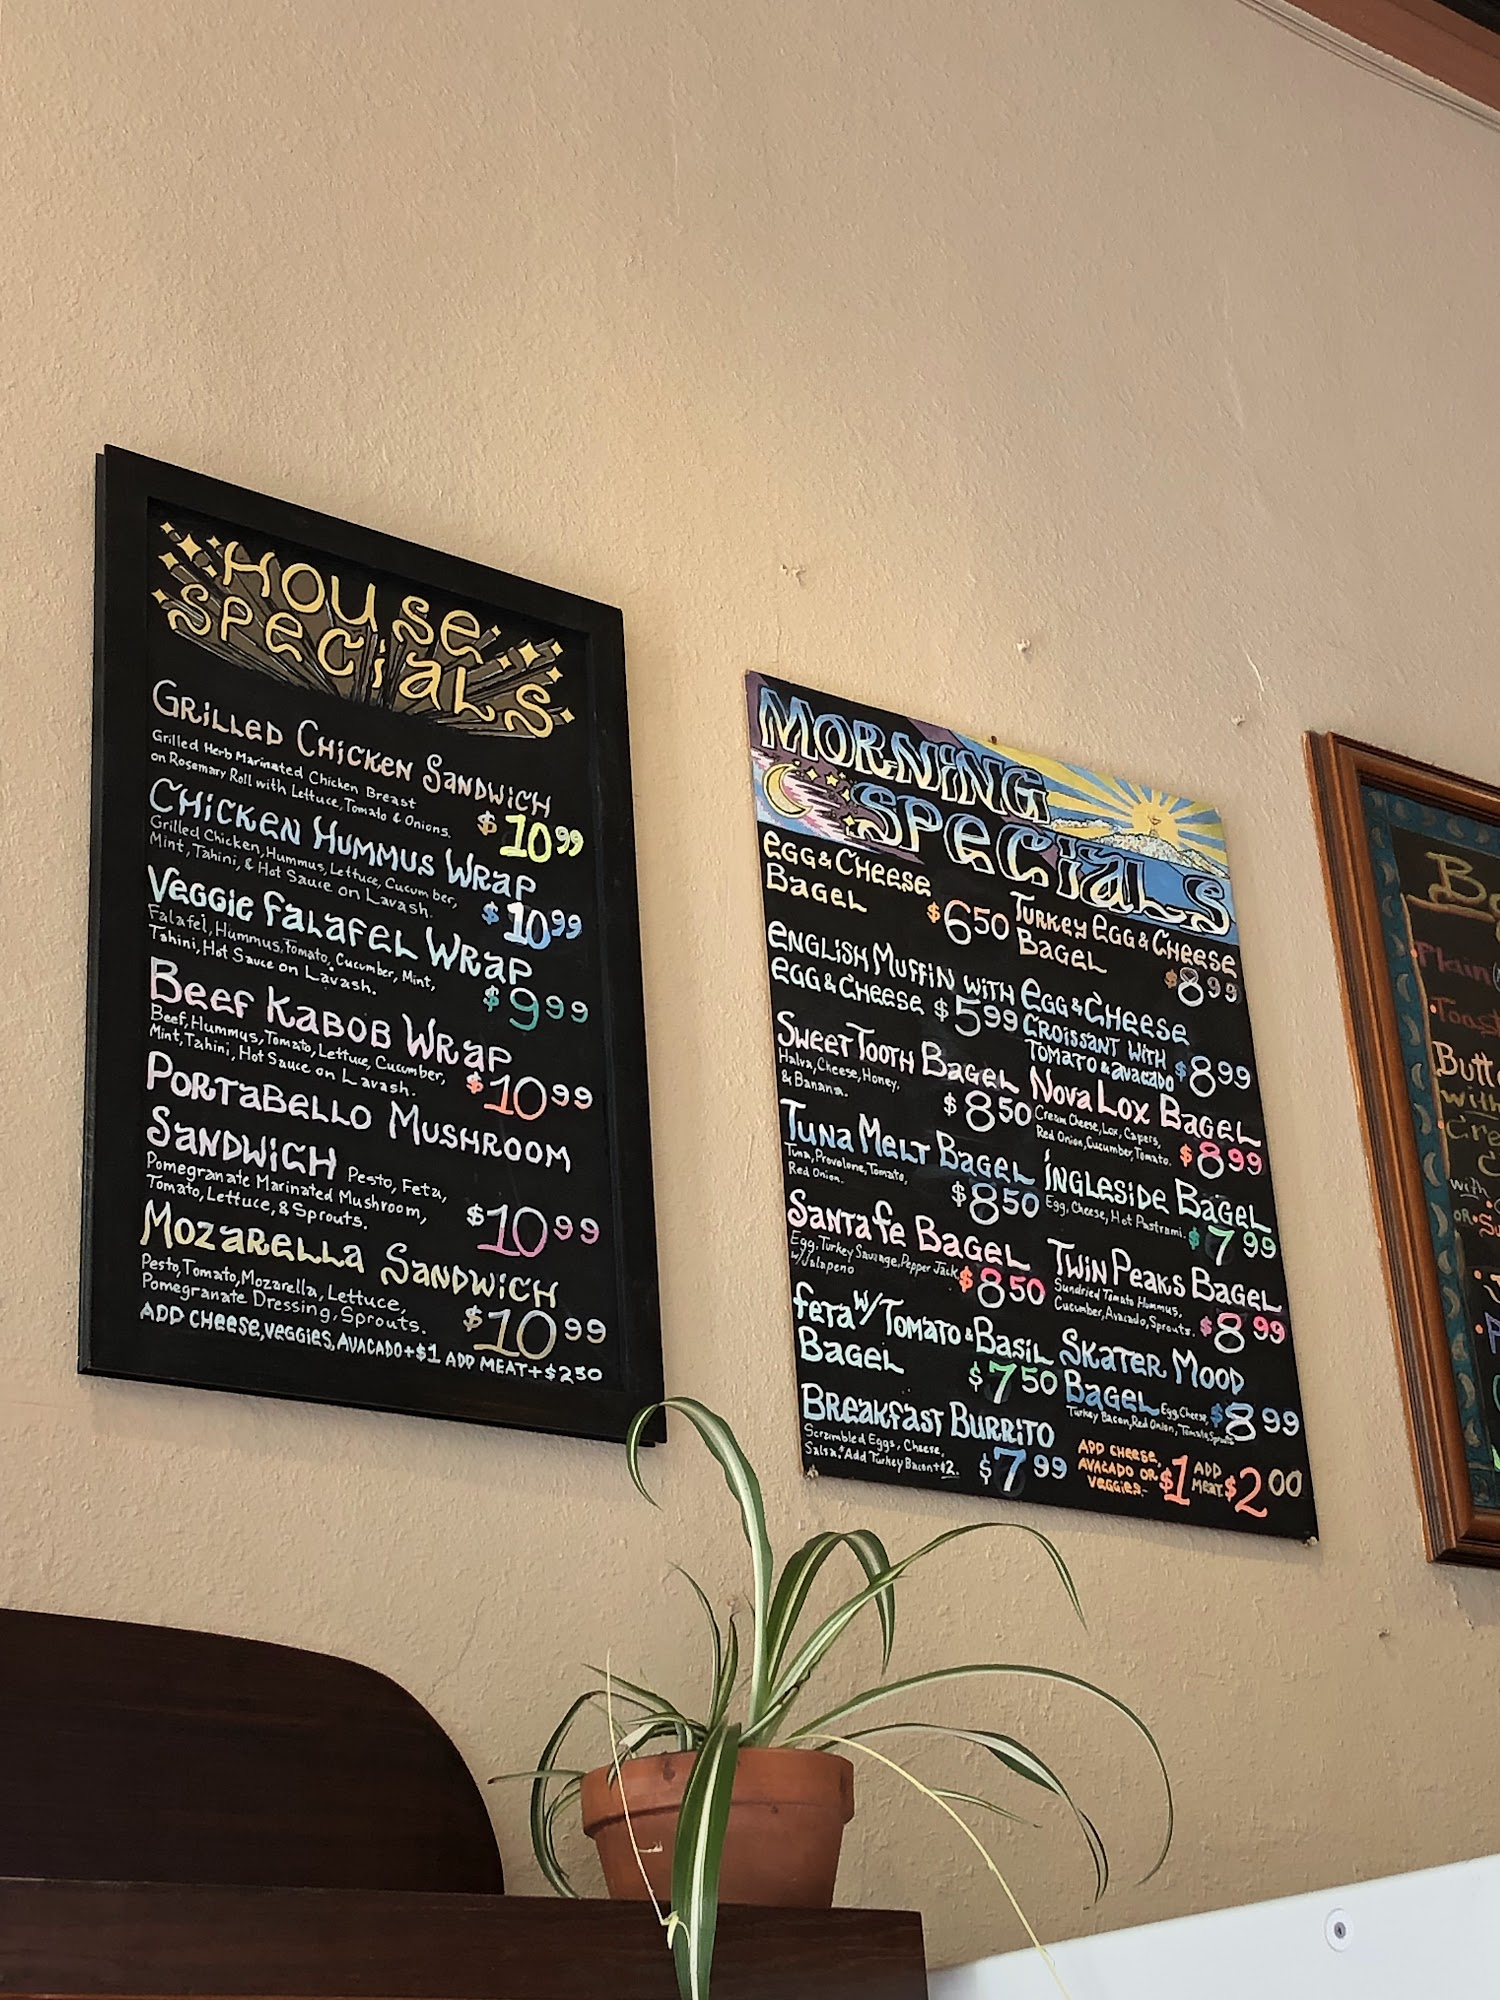 HOUSE
SPECIALS
GRILLED CHICKEN SANDWICH
Grilled Herb Marinated Chicken Breast
on Rosemary Roll with Lettuce, Tomato & Onions.
$10.99
CHICKEN HUMMUS WRAP
Grilled Chicken, Hummus, Lettuce, Cucumber,
Mint, Tahini, & Hot Sauce on Lavash.
$10.99
VEGGIE FALAFEL WRAP
Falafel, Hummus, Tomato, Cucumber, Mint,
Tahini, Hot Sauce on Lavash.
$9.99
BEEF KABOB WRAP
Beef, Hummus, Tomato, Lettuce, Cucumber,
Mint, Tahini, Hot Sauce on Lavash.
$10.99
PORTABELLO MUSHROOM
SANDWICH Pesto, Feta,
Pomegranate Marinated Mushroom,
Tomato, Lettuce, & Sprouts.
$10.99
MOZARELLA SANDWICH
Pesto, Tomato, Mozarella, Lettuce,
Pomegranate Dressing, Sprouts.
$10.99
ADD CHEESE, VEGGIES, AVACADO+$1 ADD MEAT+$2.50
MORNING
SPECIALS
EGG & CHEESE
BAGEL
$6.50
ENGLISH MUFFIN WITH
EGG & CHEESE $5.99
SWEET TOOTH BAGEL
Halva, Cheese, Honey,
& Banana.
$8.50
TUNA MELT BAGEL
Tuna, Provolone, Tomato,
Red Onion.
$8.50
SANTA FE BAGEL
Egg, Turkey Sausage, Pepper Jack
w/ Jalapeno
$8.50
FETA W/ TOMATO & BASIL
BAGEL
$7.50
BREAKFAST BURRITO
Scrambled Eggs, Cheese,
Salsa. *Add Turkey Bacon+$2.
$7.99
TURKEY EGG & CHEESE
BAGEL
$8.99
EGG & CHEESE
CROISSANT WITH
TOMATO & AVACADO
$8.99
NOVA LOX BAGEL
Cream Cheese, Lox, Capers,
Red Onion, Cucumber, Tomato.
$8.99
INGLESIDE BAGEL
Egg, Cheese, Hot Pastrami.
$7.99
TWIN PEAKS BAGEL
Sundried Tomato Hummus,
Cucumber, Avacado, Sprouts.
$8.99
SKATER MOOD
BAGEL Egg, Cheese,
Turkey Bacon, Red Onion, Tomato, Sprouts
$8.99
ADD CHEESE,
AVACADO OR
VEGGIES.- $1
ADD
MEAT. $2.00
Plain
Toast
with